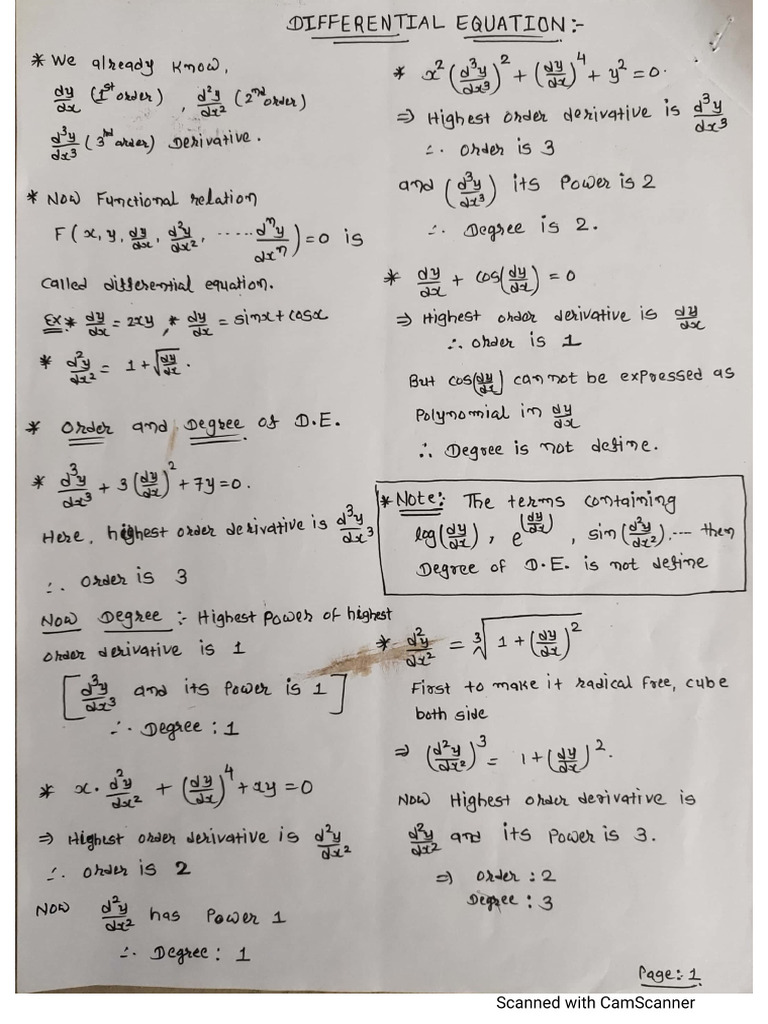 DIFFERENTIAL EQUATION:-
* We already know,
dy/dx (1st order) , d²y/dx² (2nd order)
d³y/dx³ (3rd order) Derivative.
* Now Functional relation
F(x, y, dy/dx, d²y/dx², ..... dⁿy/dxⁿ) = 0 is
called differential equation.
Ex * dy/dx = 2xy, * dy/dx = sinx + cosx
* d²y/dx² = 1 + √(dy/dx).
* Order and Degree of D.E.
* d³y/dx³ + 3(dy/dx)² + 7y = 0.
Here, highest order derivative is d³y/dx³
∴ order is 3
Now Degree :- Highest Power of highest
order derivative is 1
[d³y/dx³ and its Power is 1]
∴ Degree : 1
* x. d²y/dx² + (dy/dx)⁴ + xy = 0
⇒ Highest order derivative is d²y/dx²
∴ order is 2
Now d²y/dx² has Power 1
∴ Degree : 1
* x²(d³y/dx³)² + (dy/dx)⁴ + y² = 0.
⇒ Highest order derivative is d³y/dx³
∴ order is 3
and (d³y/dx³) its Power is 2
∴ Degree is 2.
* dy/dx + cos(dy/dx) = 0
⇒ Highest order derivative is dy/dx
∴ order is 1
But cos(dy/dx) can not be expressed as
Polynomial in dy/dx
∴ Degree is not define.
* Note: The terms containing
log(dy/dx), e^(dy/dx), sin(d²y/dx²), .... then
Degree of D.E. is not define
* d²y/dx² = ∛(1 + (dy/dx)²)
First to make it radical free, cube
both side
⇒ (d²y/dx²)³ = 1 + (dy/dx)².
Now Highest order derivative is
d²y/dx² and its Power is 3.
⇒ order : 2
Degree : 3
Page: 1
Scanned with CamScanner